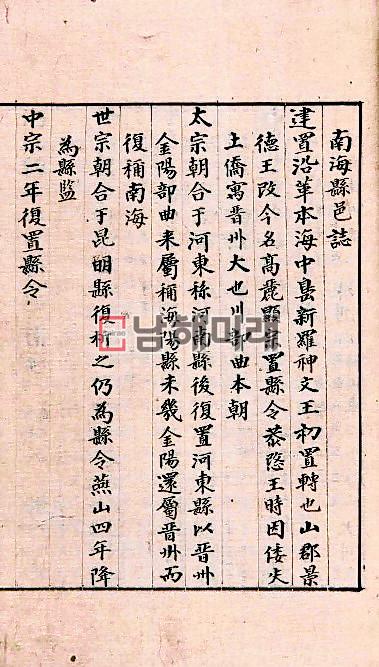 南海縣邑誌
建置沿革本海中島新羅神文王初置轉也山郡景
德王改今名高麗顯宗置縣令恭愍王時因倭失
土僑寓晋州大也川部曲本朝
太宗朝合于河東称河南縣後復置河東縣以晋州
金陽部曲来屬稱海陽縣未幾金陽還屬晋州而
復稱南海
世宗朝合于昆明縣復析之仍為縣令燕山四年降
為縣監
中宗二年復置縣令
남해미래